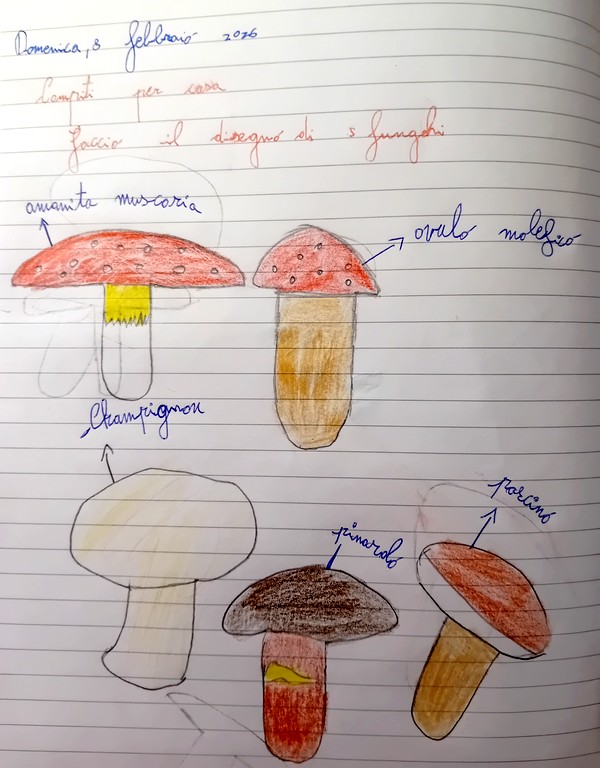 Domenica, 8 febbraio 2026
Compiti per casa
Faccio il disegno di 5 funghi
amanita muscaria
ovulo malefico
Champignon
pinarolo
porcino